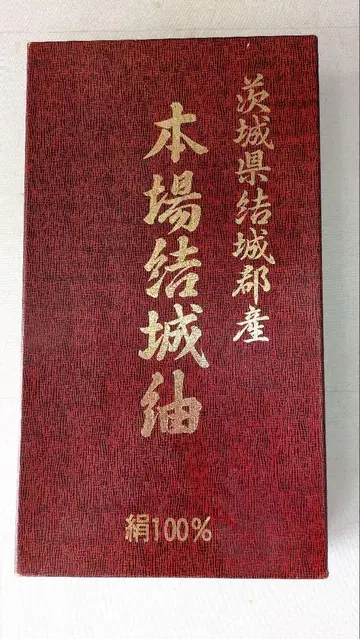 茨城県結城郡産
本場結城紬
絹100%